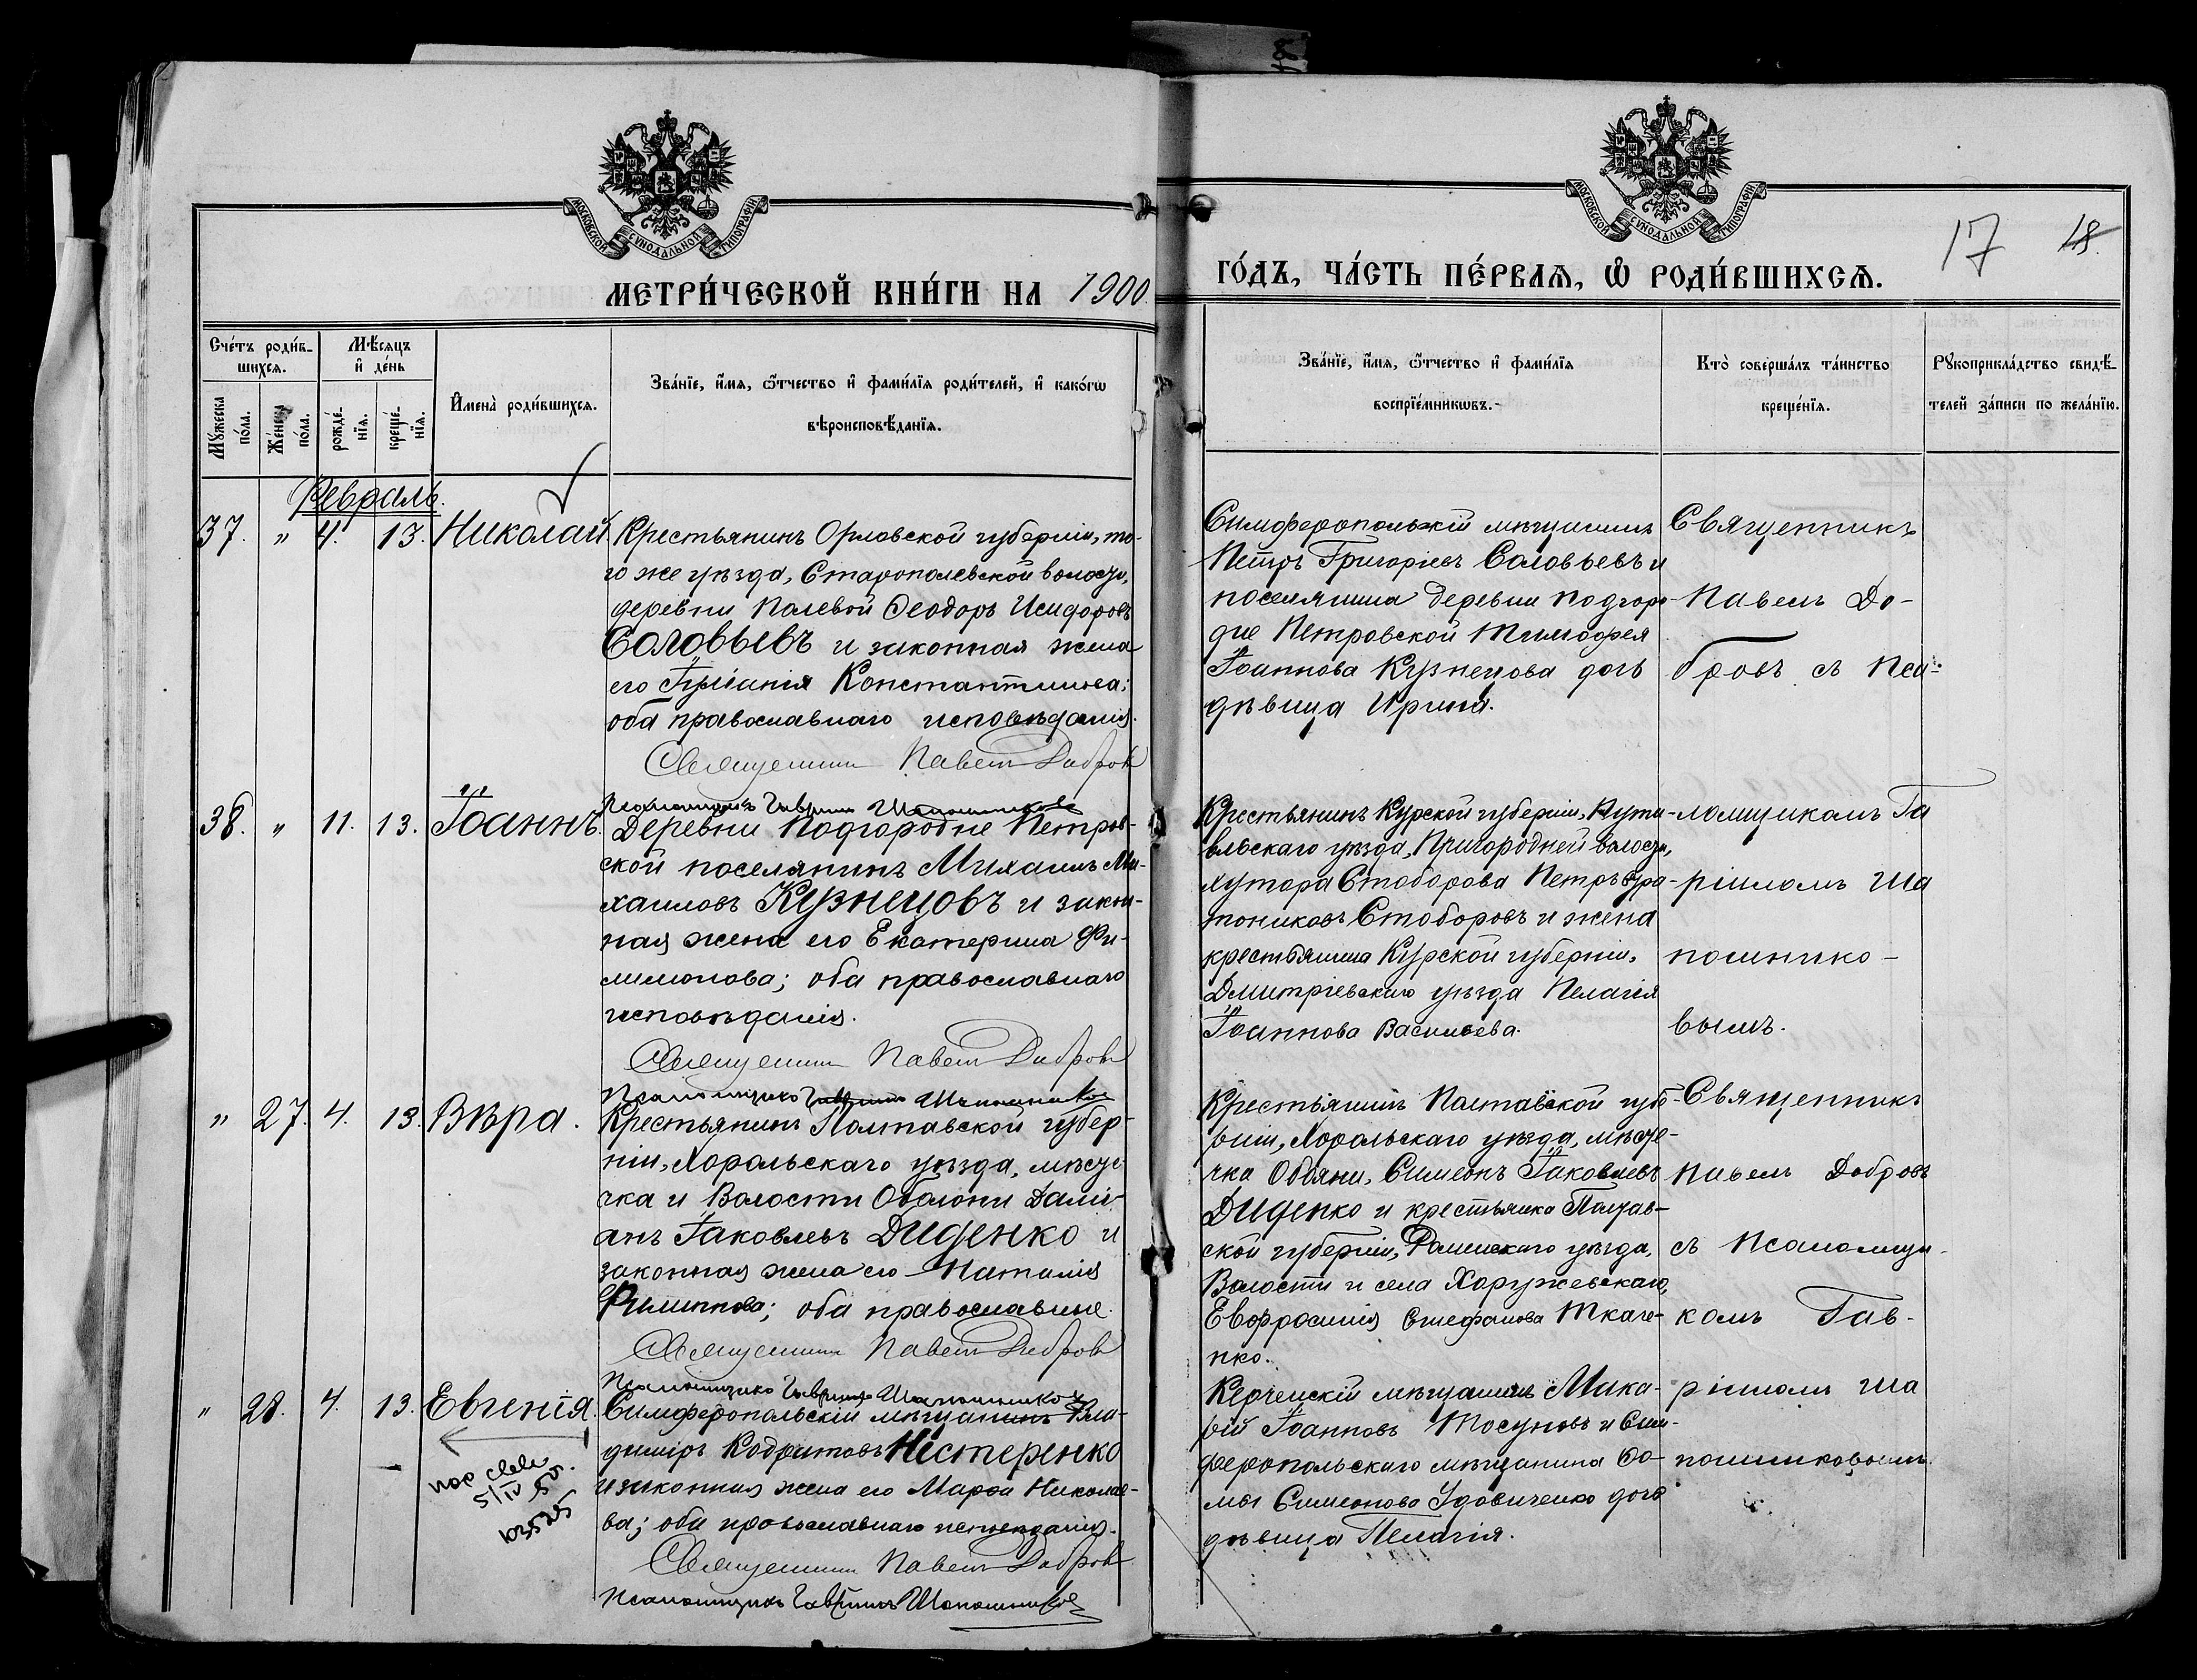 МОСКОВСКОЙ СѴНОДАЛЬНОЙ ТИПОГРАФІИ
МЕТРИ́ЧЕСКОЙ КНИ́ГИ НА 1900
Сче́тъ роди́в-
шихсѧ.
Мѣ́сѧцъ
и҆ де́нь
Мꙋ́жеска
по́ла.
Же́нска
по́ла.
рожде́-
нїѧ.
креще́-
нїѧ.
И҆мена̀ роди́вшихсѧ.
Зва́нїе, и҆́мѧ, ѻ҆́тчество и҆ фами́лїѧ роди́телей, и҆ како́гѡ
вѣроисповѣ́данїѧ.
Февраль.
37. " 4. 13. Николай
Крестьянинъ Орловской губерніи, то-
го же уѣзда, Старополевской волости,
деревни Полевой Ѳеодоръ Исидоровъ
Соловьевъ и законная жена
его Константинова;
оба православнаго исповѣданія.
Священникъ Павелъ Добровъ
Псаломщикъ Гавріилъ Шапошниковъ
38. " 11. 13. Іоаннъ.
Деревни Подгородне Петров-
ской поселянинъ Михаилъ Ми-
хаиловъ Кузнецовъ и закон-
ная жена его Екатерина Фи-
лимонова; оба православнаго
исповѣданія.
Священникъ Павелъ Добровъ
Псаломщикъ Гавріилъ Шапошниковъ
" 27. 4. 13. Вѣра.
Крестьянинъ Полтавской губер-
ніи, Хорольскаго уѣзда, мѣсте-
чка и Волости Оболони Дамі-
анъ Іаковлевъ Диденко и
законная жена его Наталія
Филиппова; оба православные.
Священникъ Павелъ Добровъ
Псаломщикъ Гавріилъ Шапошниковъ
" 28. 4. 13. Евгенія.
Симферопольскій мѣщанинъ Вла-
диміръ Кодратовъ Нестеренко
и законная жена его Марѳа Николае-
ва; оба православнаго исповѣданія.
Священникъ Павелъ Добровъ
Псаломщикъ Гавріилъ Шапошниковъ
5/IV
103525
МОСКОВСКОЙ СѴНОДАЛЬНОЙ ТИПОГРАФІИ
ГО́ДЪ, ЧА́СТЬ ПЕ́РВАѦ, Ѡ҆ РОДИ́ВШИХСѦ.
17 18
Зва́нїе, и҆́мѧ, ѻ҆́тчество и҆ фами́лїѧ
воспрїе́мникѡвъ.
Кто̀ соверша́лъ та́инство
креще́нїѧ.
Рꙋкоприкла́дство свидѣ́-
телей за́писи по жела́нїю.
Симферопольскій мѣщанинъ
Петръ Григоріевъ Соловьевъ и
поселянина деревни Подгоро-
дне Петровской Тимоѳея
Іоаннова Кузнецова дочь
дѣвица Ирина.
Священникъ
Павелъ До-
бровъ съ Пса-
Крестьянинъ Курской губерніи, Пути-
вльскаго уѣзда, Пригородней волости,
хутора Стоборова Петръ
Стоборовъ и жена
крестьянина Курской губерніи,
Дмитріевскаго уѣзда Пелагія
Іоаннова Васильева.
ломщикомъ Га
ріиломъ Ша
пошнико-
вымъ.
Крестьянинъ Полтавской губе-
рніи, Хорольскаго уѣзда, мѣсте-
чка Симеонъ Іаковлевъ
Диденко и крестьянка Полтав-
ской губерніи, Роменскаго уѣзда,
Волости и села Хоружевскаго,
Евфросинія Стефанова Ткаче-
нко.
Священникъ
Павелъ Добровъ
съ Псаломщи-
комъ Гав-
Керченскій мѣщанинъ Мака-
рій Іоанновъ Тосуновъ и Сим-
феропольскаго мѣщанина Ѳо-
мы Симеонова Удовиченко дочь
дѣвица Пелагія.
ріиломъ Ша
пошниковымъ.